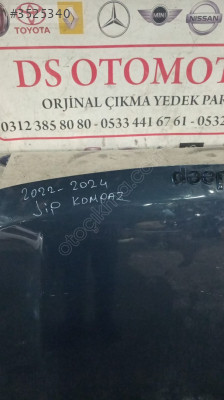 #3525340
TOYOTA
MINI
NISSAN
DS OTOMOT
ORJİNAL ÇIKMA YEDEK PAR
0312 385 80 80 - 0533 441 67 61 - 0532
2022-2024
JİP KOMPAZ
Jeep